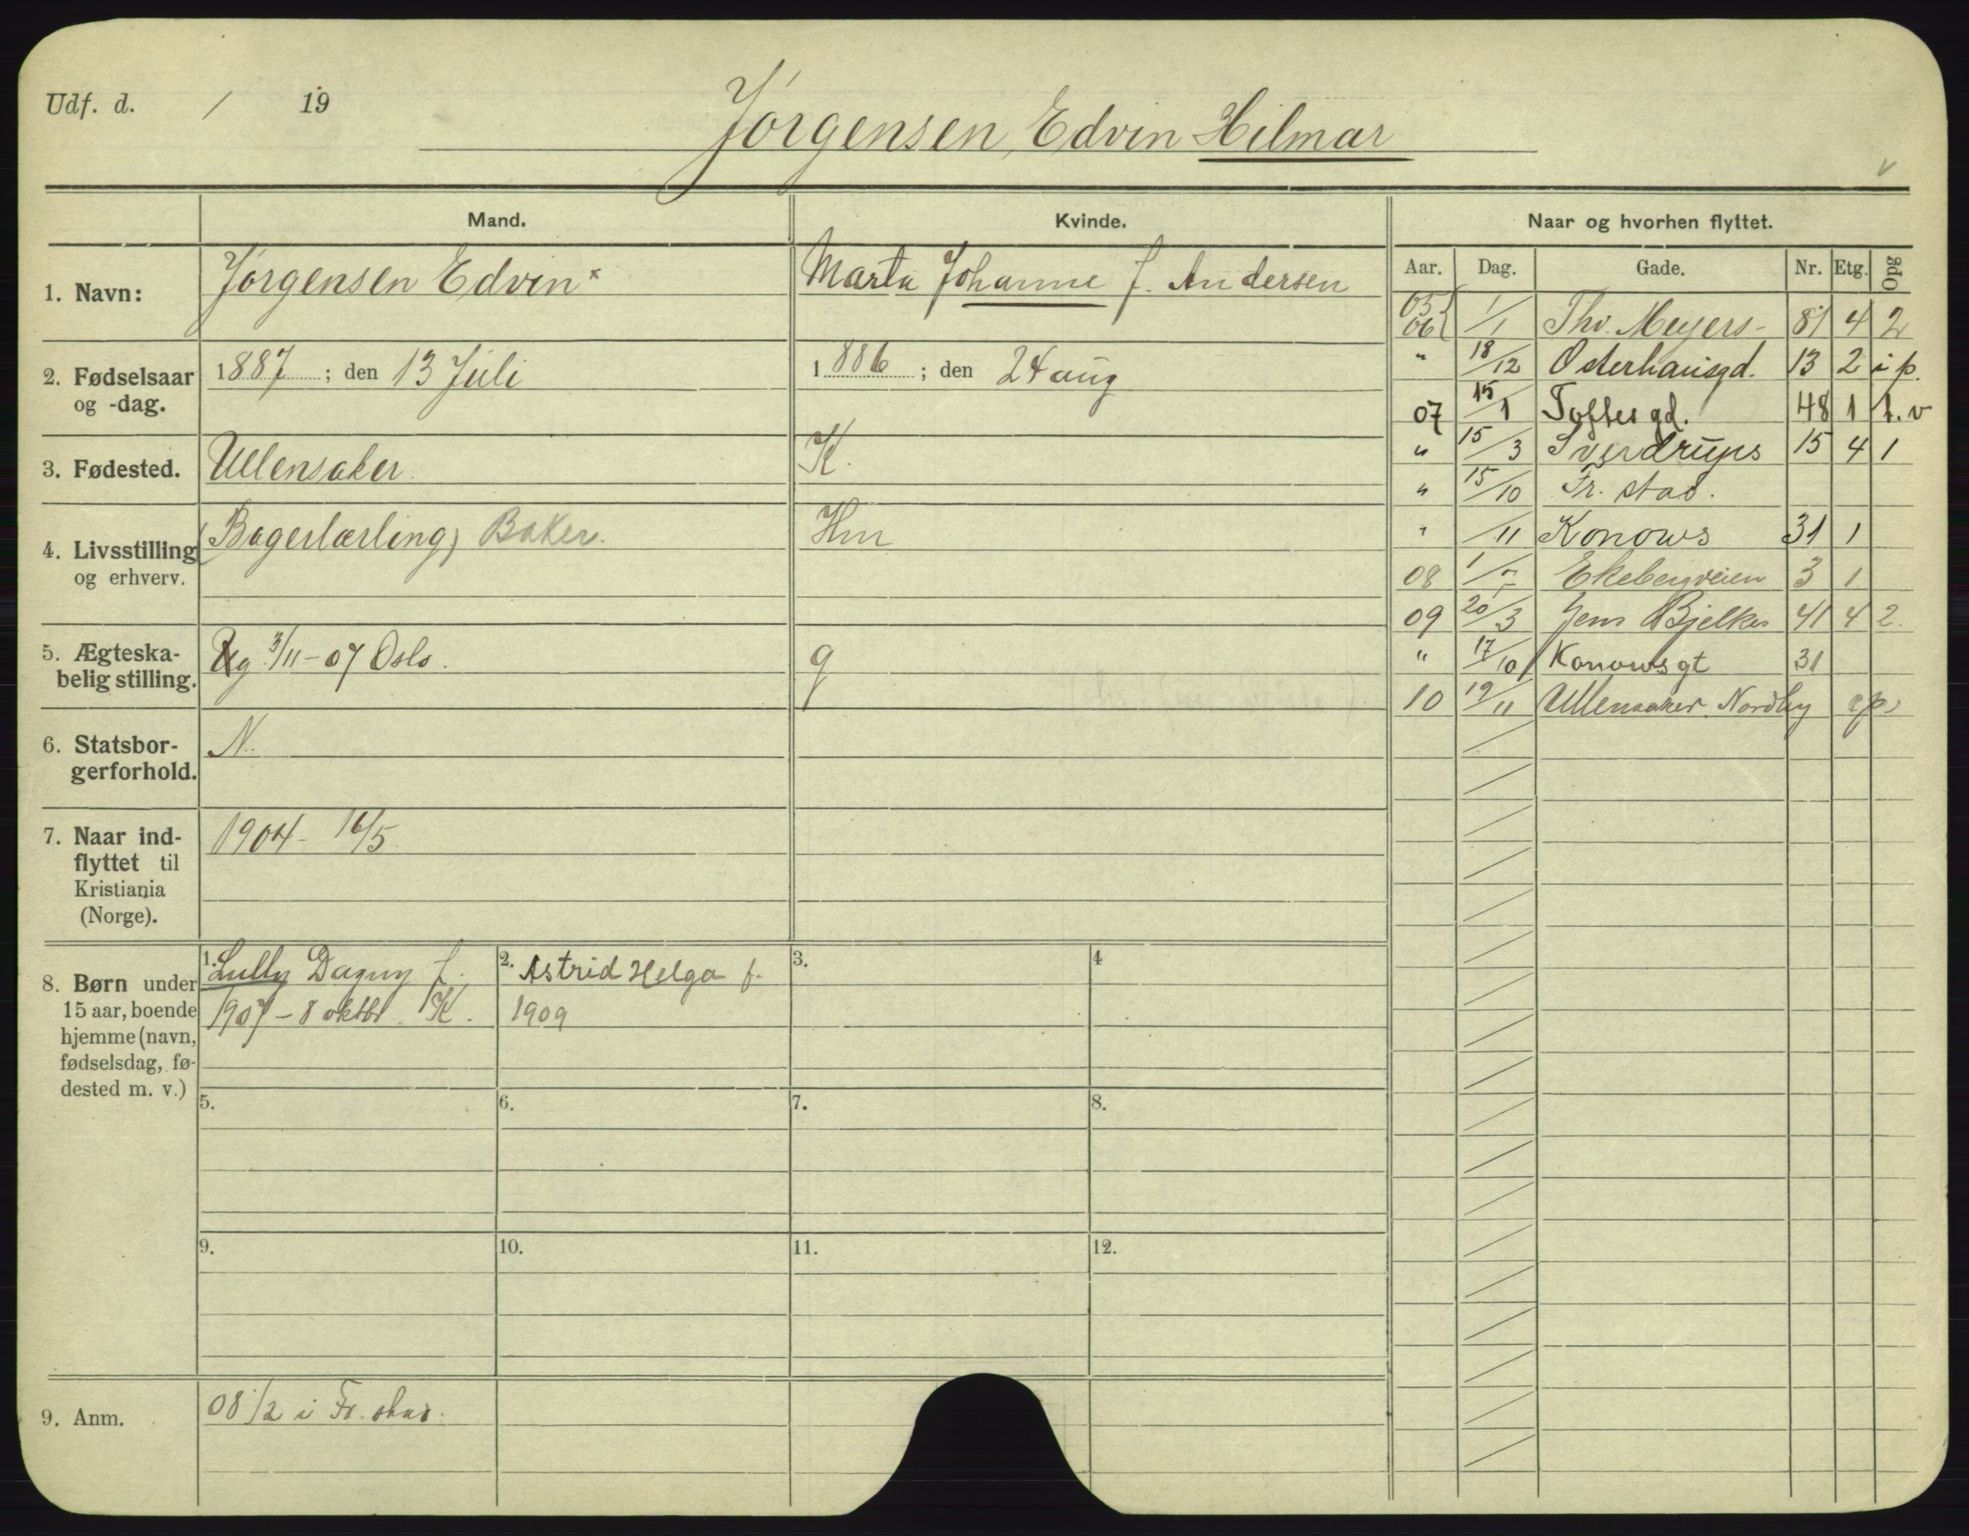 Udf. d. / 19
Jörgensen, Edvin Hilmar
v
Mand.
Kvinde.
Naar og hvorhen flyttet.
1. Navn:
Jörgensen Edvin x
Marta Johanne f. Andersen
2. Fødselsaar og -dag.
1887 ; den 13 Juli
1886 ; den 24 aug
3. Fødested.
Ullensaker
K.
4. Livsstilling og erhverv.
(Bagerlærling) Baker.
Hm
5. Ægteskabelig stilling.
g 3/11-07 Oslo.
g
6. Statsborgerforhold.
N.
7. Naar indflyttet til Kristiania (Norge).
1904 - 16/5
8. Børn under 15 aar, boende hjemme (navn, fødselsdag, fødested m. v.)
1. Lully Dagny f.
1907 - 8 oktbr. K.
2. Astrid Helga f.
1909
3.
4
5.
6.
7.
8.
9.
10.
11.
12.
9. Anm.
08 1/2 i Fr. stad.
Aar. Dag. Gade. Nr. Etg. Opg
05 06 1/1 Thv. Meyers- 81 4 2
" 18/12 Osterhausgd. 13 2 i p.
07 15/1 Toftesgd. 48 1 1. v
" 15/3 Sverdrups 15 4 1
" 15/10 Fr. stad.
" /11 Konows 31 1
08 1/ Ekebergveien 3 1
09 20/3 Jens Bjelkes 41 4 2.
" 17/10 Konowsgt 31
10 19/11 Ullensaker. Nordby